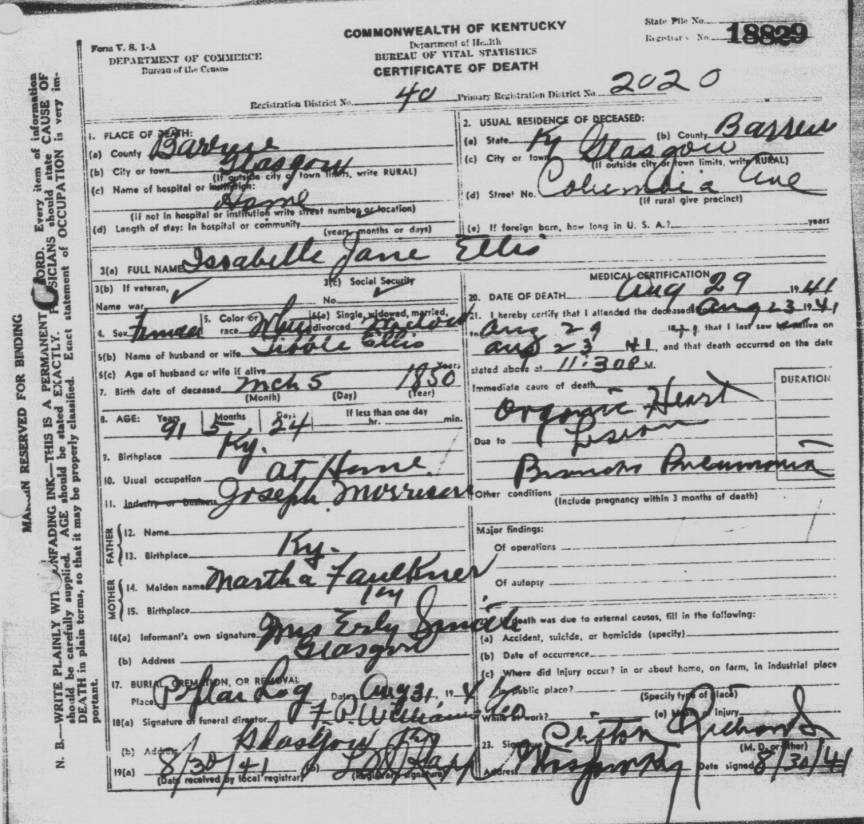 Form V. S. 1-A
DEPARTMENT OF COMMERCE
Bureau of the Census
COMMONWEALTH OF KENTUCKY
Department of Health
BUREAU OF VITAL STATISTICS
CERTIFICATE OF DEATH
State File No.
Registrar's No. 18829
Registration District No. 40 Primary Registration District No. 2020
MARGIN RESERVED FOR BINDING
N. B.—WRITE PLAINLY WITH UNFADING INK—THIS IS A PERMANENT RECORD. Every item of information
should be carefully supplied. AGE should be stated EXACTLY. PHYSICIANS should state CAUSE OF
DEATH in plain terms, so that it may be properly classified. Exact statement of OCCUPATION is very im-
portant.
1. PLACE OF DEATH:
(a) County Barren
(b) City or town Glasgow
(If outside city or town limits, write RURAL)
(c) Name of hospital or institution:
Home
(if not in hospital or institution write street number or location)
(d) Length of stay: In hospital or community
(years, months or days)
2. USUAL RESIDENCE OF DECEASED:
(a) State Ky (b) County Barren
(c) City or town Glasgow
(If outside city or town limits, write RURAL)
(d) Street No. Columbia Ave
(If rural give precinct)
(e) If foreign born, how long in U. S. A.? years
3(a) FULL NAME Issabelle Jane Ellis
3(b) If veteran, Name war
3(c) Social Security No.
4. Sex Female 5. Color or race White 6(a) Single, widowed, married, divorced
6(b) Name of husband or wife Ellis
6(c) Age of husband or wife if alive Years
7. Birth date of deceased Mch 5 1850
(Month) (Day) (Year)
8. AGE: Years 91 Months 5 Days 24 If less than one day hr. min.
9. Birthplace Ky.
10. Usual occupation at Home
11. Industry or business Joseph Morrison
FATHER
12. Name
13. Birthplace Ky.
MOTHER
14. Maiden name Martha Faulkner
15. Birthplace Ky
16(a) Informant's own signature Mrs Erly Smith
(b) Address Glasgow
17. BURIAL, CREMATION, OR REMOVAL
Place Poplar Log Date Aug 31, 1941
18(a) Signature of funeral director F. P. Williams Co
(b) Address Glasgow Ky
19(a) 8/30/41 (b)
(Date received by local registrar) (Registrar's signature)
MEDICAL CERTIFICATION
20. DATE OF DEATH Aug 29 1941
21. I hereby certify that I attended the deceased Aug 23 1941
to Aug 29 that I last saw alive on
Aug 23 41, and that death occurred on the date
stated above at 11:30P M.
DURATION
Immediate cause of death
Organic Heart
Lesion
Due to
Broncho Pneumonia
Other conditions
(Include pregnancy within 3 months of death)
Major findings:
Of operations
Of autopsy
death was due to external causes, fill in the following:
(a) Accident, suicide, or homicide (specify)
(b) Date of occurrence
(c) Where did injury occur? in or about home, on farm, in industrial place
public place?
(Specify type of place)
While at work? (e) Means of injury
23.
(M. D. or other)
Address Date signed 8/30/41